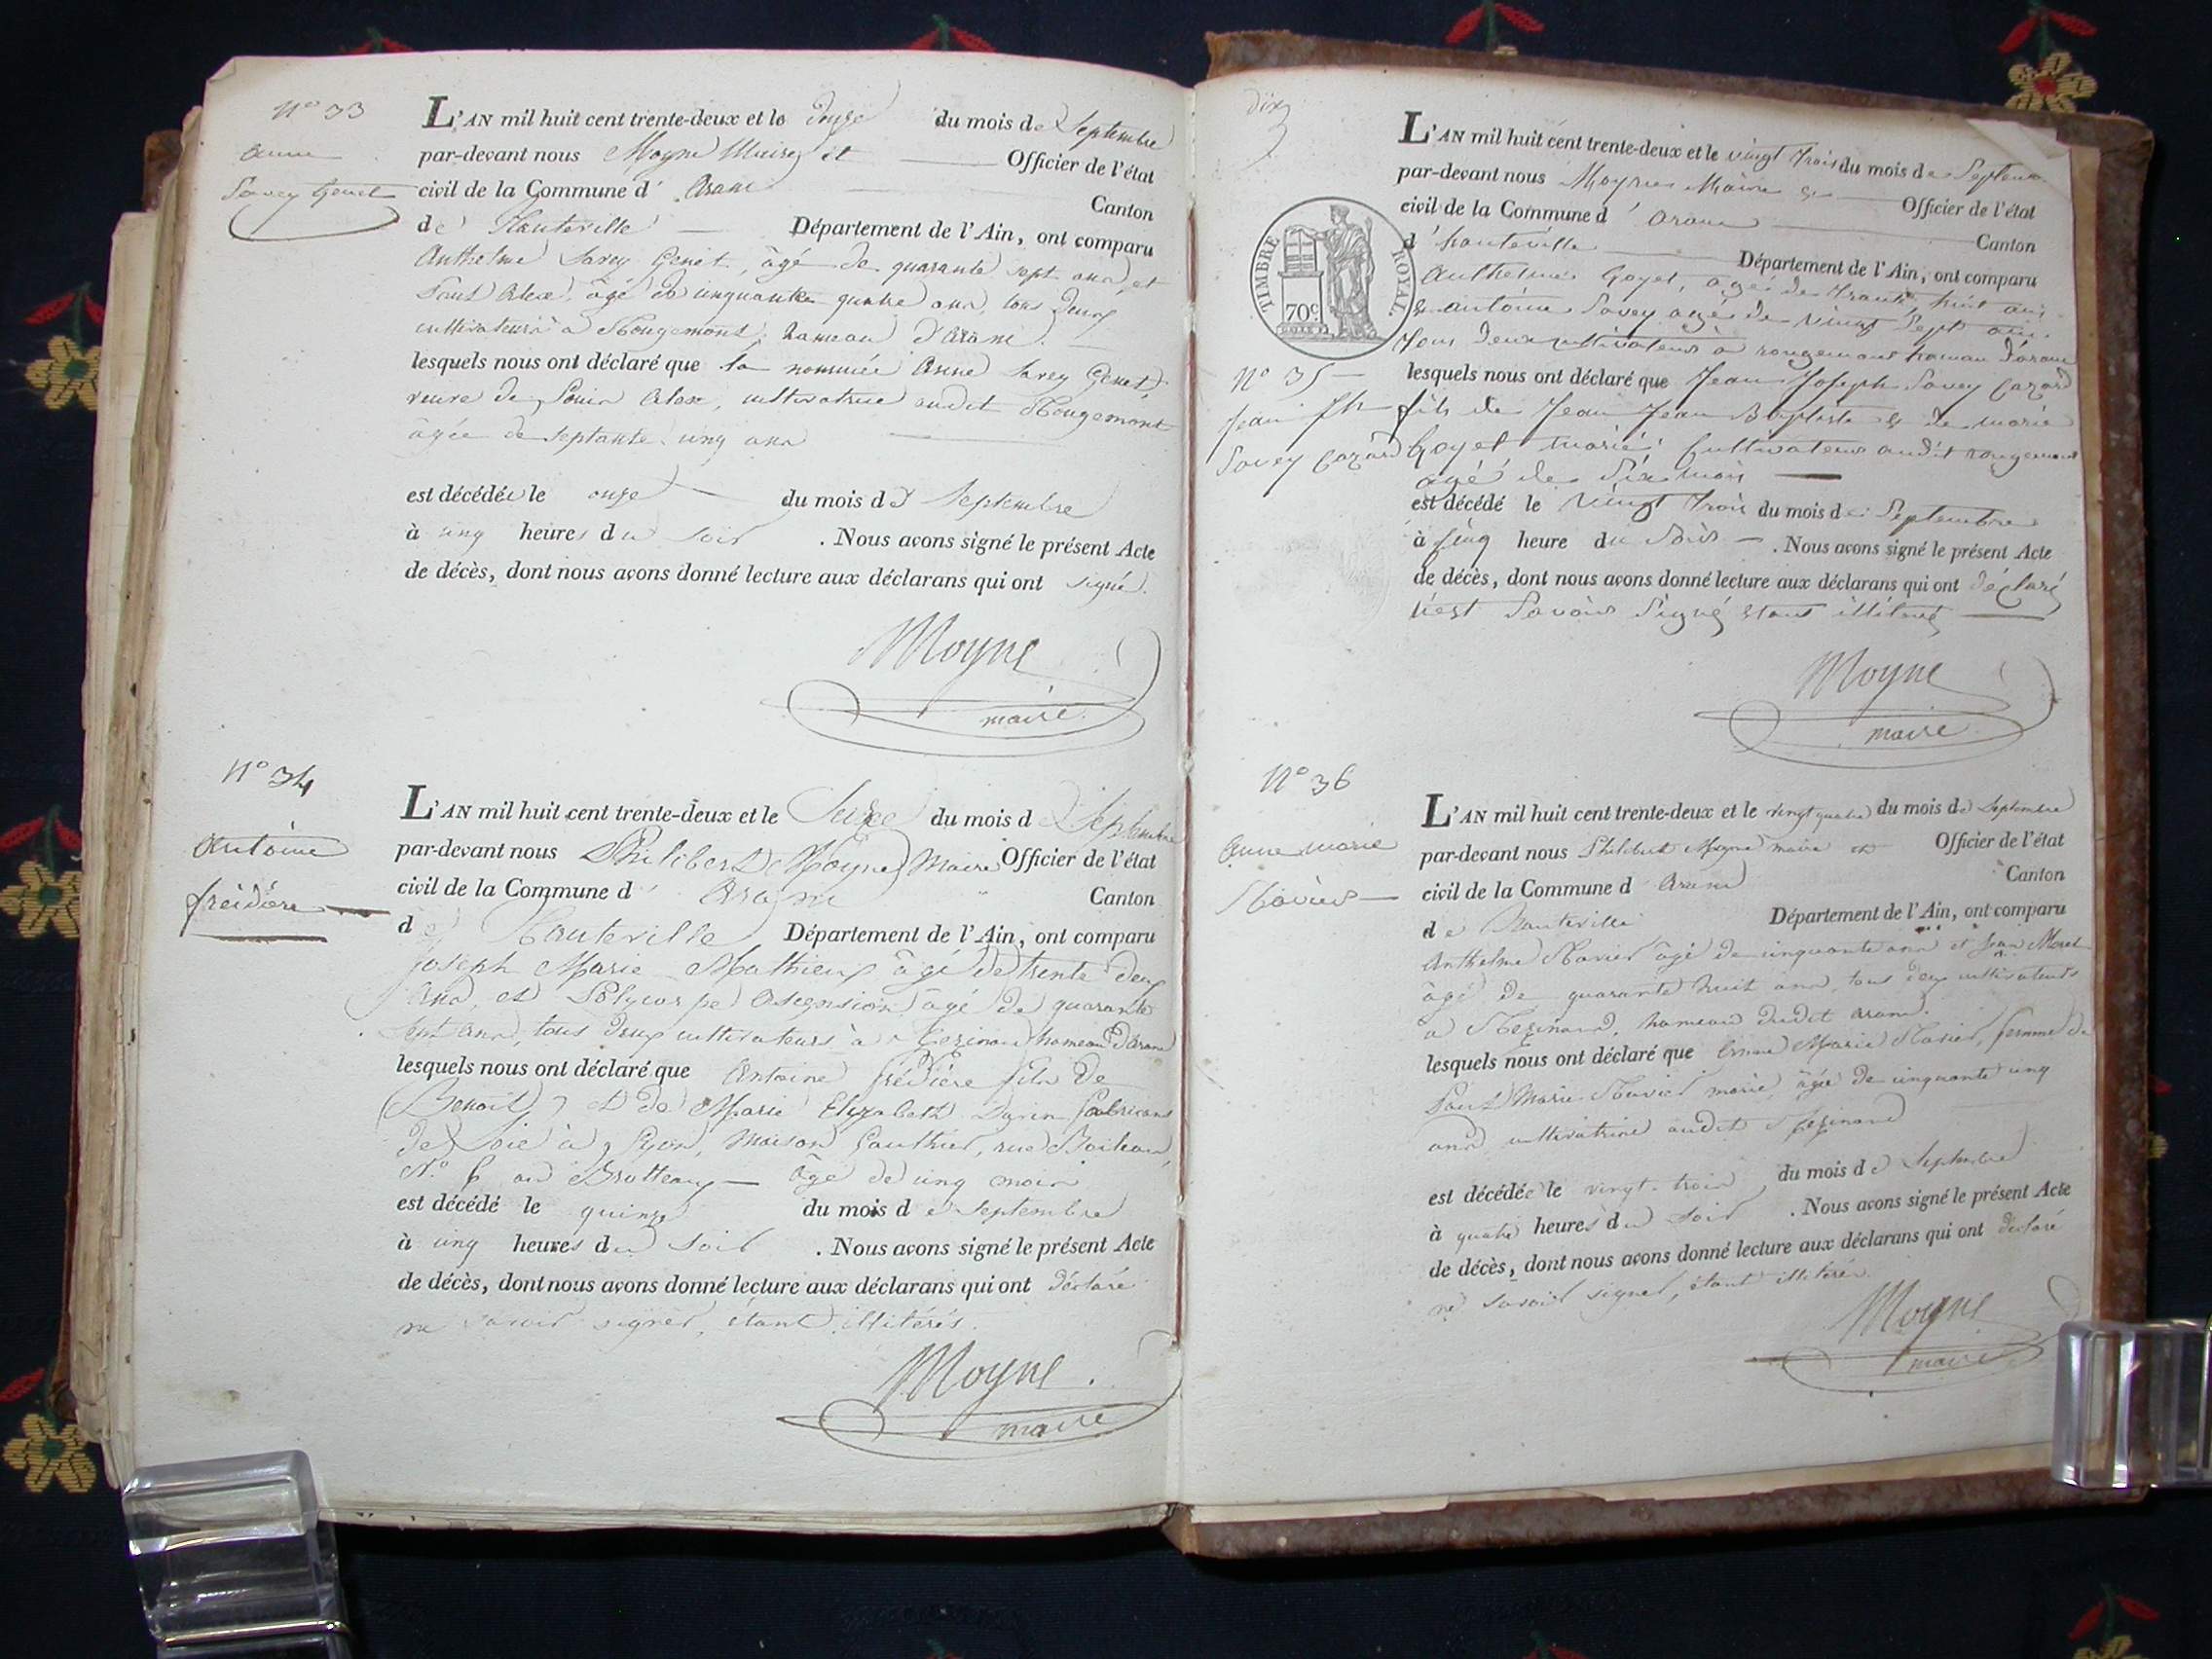 N° 33
anne
Savey Genet
L'AN mil huit cent trente-deux et le douze du mois de Septembre
par-devant nous Moyne Maire et Officier de l'état
civil de la Commune d' Aranc Canton
de Hauteville Département de l'Ain, ont comparu
Anthelme Savey Genet, âgé de quarante sept ans, et
âgé de cinquante quatre ans, tous deux
cultivateurs à Rougemont, hameau d'Aranc.
lesquels nous ont déclaré que la nommée Anne Savey Genet
veuve de Louis Alex, cultivatrice audit Rougemont
âgée de septante cinq ans
est décédée le onze du mois de Septembre
à cinq heures du soir . Nous avons signé le présent Acte
de décès, dont nous avons donné lecture aux déclarans qui ont signé.
Moyne
maire
N° 34
antoine
freidière
L'AN mil huit cent trente-deux et le Seize du mois de Septembre
par-devant nous Philibert Moyne Maire Officier de l'état
civil de la Commune d' Aranc Canton
de Hauteville Département de l'Ain, ont comparu
Joseph Marie Mathieu âgé de trente deux
ans, et Polycarpe Ascension âgé de quarante
sept ans, tous deux cultivateurs à Rezinand hameau d'Aranc
lesquels nous ont déclaré que Antoine frédière fils de
Benoit, et de Marie Elizabeth fabricans
de Soie à Lyon, Maison Gauthier, rue Boileau,
N° 6 aux Brotteaux — âgé de cinq mois
est décédé le quinze du mois de Septembre
à cinq heures du soir . Nous avons signé le présent Acte
de décès, dont nous avons donné lecture aux déclarans qui ont déclaré
ne savoir signer, étant illitérés.
Moyne.
maire
dix
TIMBRE ROYAL
70c
N° 35
Jean Jh
Savey Cazard
L'AN mil huit cent trente-deux et le vingt trois du mois de Septembre
par-devant nous Moyne Maire & Officier de l'état
civil de la Commune d' aranc Canton
d' hauteville Département de l'Ain, ont comparu
Anthelme Goyet, agé de trante huit ans
& antoine Savey agé de vingt Sept ans
tous deux cultivateurs à rougemont hamau d'aranc
lesquels nous ont déclaré que Jean Joseph Savey Cazard
fils de Jean Jean Baptiste & de marie
Goyet mariés Cultivateurs audit rougemont
agé de Six mois
est décédé le vingt trois du mois de Septembre
à Sinq heure du Soir . Nous avons signé le présent Acte
de décès, dont nous avons donné lecture aux déclarans qui ont déclaré
Savoir Signé étant
Moyne
maire
N° 36
Anne marie
Ravier
L'AN mil huit cent trente-deux et le vingt quatre du mois de Septembre
par-devant nous Philibert Moyne maire et Officier de l'état
civil de la Commune d' Aranc Canton
de Hauteville Département de l'Ain, ont comparu
Anthelme Ravier âgé de cinquante ans et Jean Morel
âgé de quarante huit ans, tous deux cultivateurs
à Rezinand, hameau dudit Aranc.
lesquels nous ont déclaré que Anne Marie Ravier, femme de
Marie Ravier marié, âgée de cinquante cinq
ans cultivatrice audit Rezinand
est décédée le vingt-trois du mois de Septembre
à quatre heures du soir . Nous avons signé le présent Acte
de décès, dont nous avons donné lecture aux déclarans qui ont déclaré
ne savoir signer, étant illitérés.
Moyne
maire